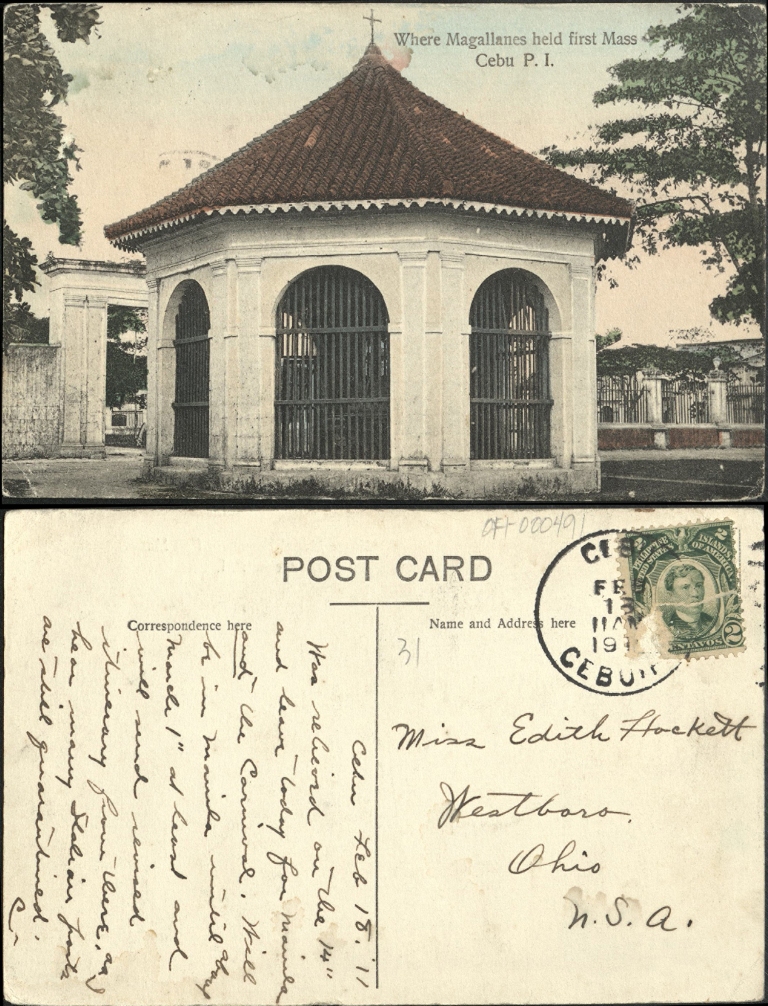 Where Magallanes held first Mass
Cebu P. I.
OFF 000491
POST CARD
Correspondence here
Name and Address here
31
CEBU
FEB
11 AM
191
CEBU
2 2
PHILIPPINE ISLANDS
UNITED STATES OF AMERICA
CENTAVOS 2
Miss Edith Hockett
Westboro,
Ohio
U.S.A.
Cebu Feb 18. 11
Was relieved on the 14"
and leave today for Manila
and the Carnival. Will
be in Manila until
March 1" at least and
will send revised
itinerary from there, as I
hear many Italian ports
are still quarantined.